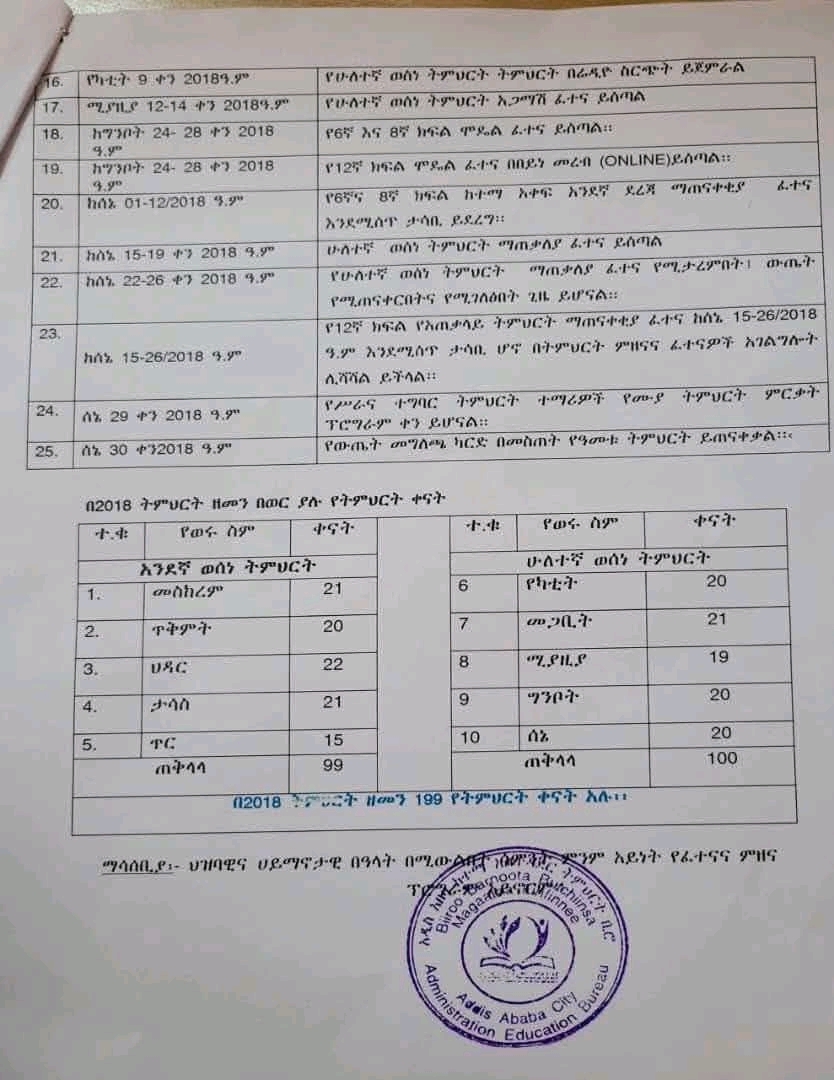 16. የካቲት 9 ቀን 2018ዓ.ም የሁለተኛ ወሰነ ትምህርት ትምህርት በሬዲዮ ስርጭት ይጀምራል
17. ሚያዚያ 12-14 ቀን 2018ዓ.ም የሁለተኛ ወሰነ ትምህርት አጋማሽ ፈተና ይሰጣል
18. ከግንቦት 24- 28 ቀን 2018 ዓ.ም የ6ኛ እና 8ኛ ክፍል ሞዴል ፈተና ይሰጣል፡፡
19. ከግንቦት 24- 28 ቀን 2018 ዓ.ም የ12ኛ ክፍል ሞዴል ፈተና በበይነ መረብ (ONLINE)ይሰጣል፡፡
20. ከሰኔ 01-12/2018 ዓ.ም የ6ኛና 8ኛ ክፍል ከተማ አቀፍ አንደኛ ደረጃ ማጠናቀቂያ ፈተና
እንደሚሰጥ ታሳቢ ይደረግ፡፡
21. ከሰኔ 15-19 ቀን 2018 ዓ.ም ሁለተኛ ወሰነ ትምህርት ማጠቃለያ ፈተና ይሰጣል
22. ከሰኔ 22-26 ቀን 2018 ዓ.ም የሁለተኛ ወሰነ ትምህርት ማጠቃለያ ፈተና የሚታረምበት፣ ውጤት
የሚጠናቀርበትና የሚገለፅበት ጊዜ ይሆናል፡፡
23. ከሰኔ 15-26/2018 ዓ.ም የ12ኛ ክፍል የአጠቃላይ ትምህርት ማጠናቀቂያ ፈተና ከሰኔ 15-26/2018
ዓ.ም እንደሚሰጥ ታሳቢ ሆኖ በትምህርት ምዘናና ፈተናዎች አገልግሎት
ሊሻሻል ይችላል፡፡
24. ሰኔ 29 ቀን 2018 ዓ.ም የሥራና ተግባር ትምህርት ተማሪዎች የሙያ ትምህርት ምርቃት
ፕሮግራም ቀን ይሆናል፡፡
25. ሰኔ 30 ቀን2018 ዓ.ም የውጤት መግለጫ ካርድ በመስጠት የዓመቱ ትምህርት ይጠናቀቃል፡፡
በ2018 ትምህርት ዘመን በወር ያሉ የትምህርት ቀናት
ተ.ቁ የወሩ ስም ቀናት ተ.ቁ የወሩ ስም ቀናት
አንደኛ ወሰነ ትምህርት ሁለተኛ ወሰነ ትምህርት
1. መስከረም 21 6 የካቲት 20
2. ጥቅምት 20 7 መጋቢት 21
3. ህዳር 22 8 ሚያዚያ 19
4. ታሳስ 21 9 ግንቦት 20
5. ጥር 15 10 ሰኔ 20
ጠቅላላ 99 ጠቅላላ 100
በ2018 ትምህርት ዘመን 199 የትምህርት ቀናት አሉ፡፡
ማሳሰቢያ፡- ህዝባዊና ሀይማኖታዊ በዓላት በሚውልበት ሳምንት ምንም አይነት የፈተናና ምዘና
ፕሮግራም አይኖርም
ትምህርት ቢሮ
Biiroo Barnoota Bulchiinsa
Magaalaa Finfinnee
Addis Ababa City
Administration Education Bureau